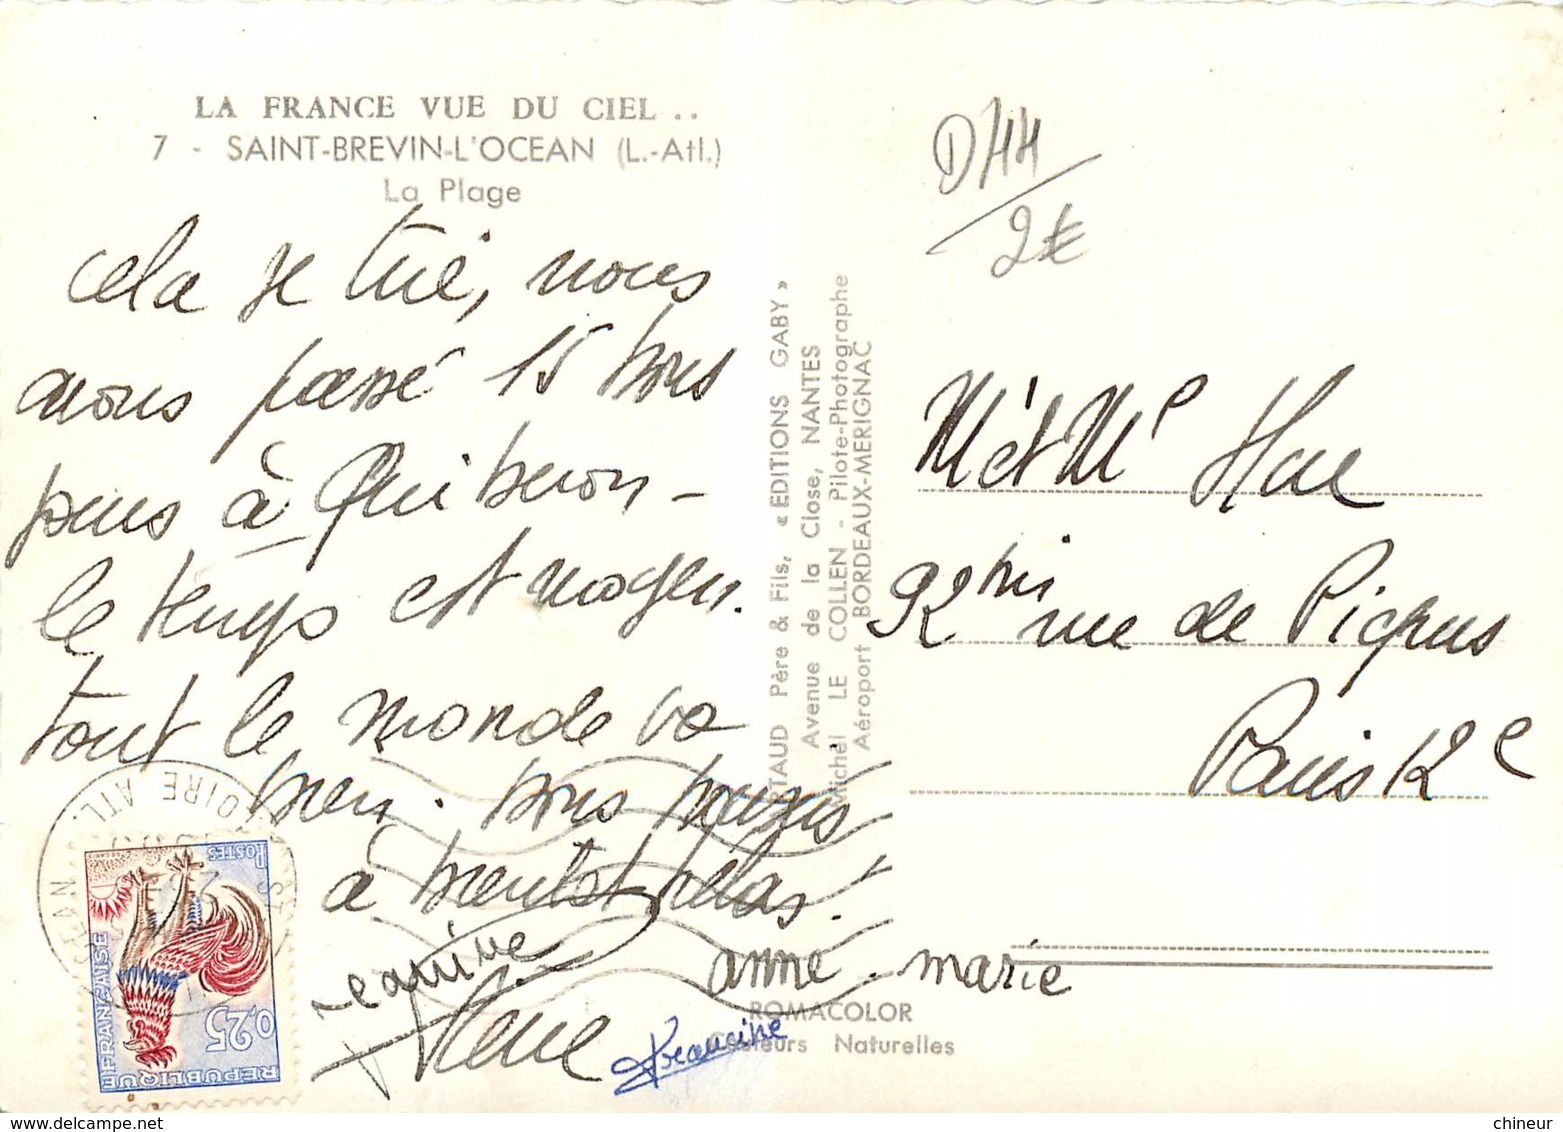 LA FRANCE VUE DU CIEL ..
7 - SAINT-BREVIN-L'OCEAN (L.-Atl.)
La Plage
cela je tué, nous
avons passé 15 bons
jours à Quiberon -
le temps est moyen.
tout le monde va
bien. bons baisers
à bientot hélas!
anne-marie
Francine
D44
2€
ARTAUD Père & Fils, « EDITIONS GABY »
Avenue de la Close, NANTES
Michel LE COLLEN - Pilote-Photographe
Aéroport BORDEAUX-MERIGNAC
Mr et Me Hue
92 bis rue de Picpus
Paris 12e
ROMACOLOR
Couleurs Naturelles
LOIRE ATL.
POSTES
0,25
REPUBLIQUE FRANÇAISE
delcampe.net
chineur